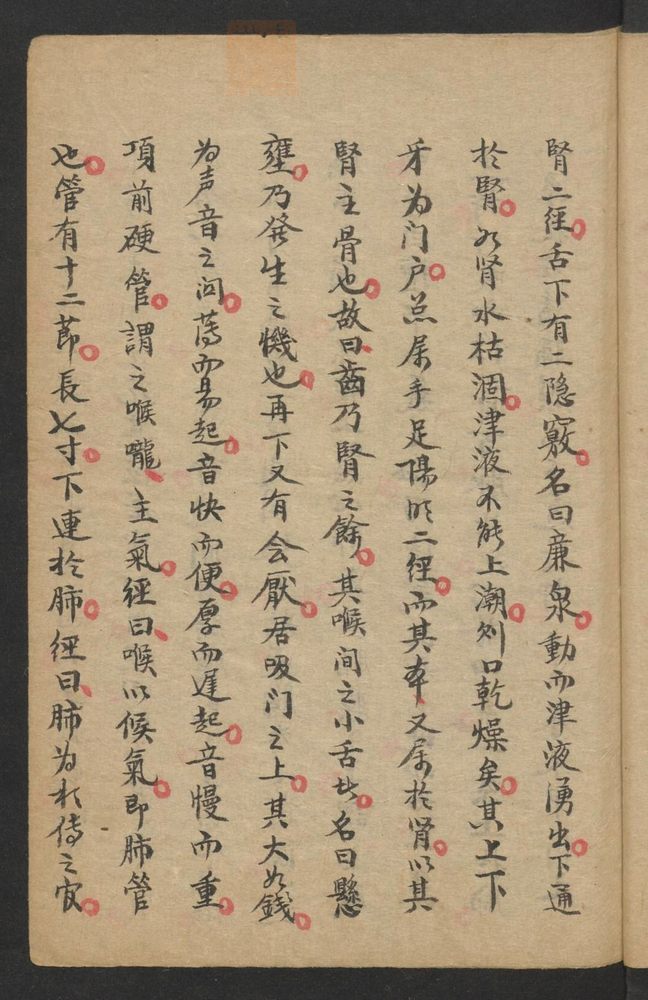 腎二徑。舌下有二隐竅。名曰廉泉。動而津液湧出。下通
扵腎。如肾水枯涸。津液不能上潮。则口乾燥矣。其上下
牙为门户。总属手足陽明二經。而其本又属扵肾。以其
腎主骨也。故曰、齒乃腎之餘。其喉间之小舌者。名曰懸
壅。乃發生之機也。再下又有会厭。居吸门之上。其大如錢。
为声音之関。薄而易起。音快而便。厚而遅起。音慢而重。
項前硬管。謂之喉嚨、主氣。經曰、喉以候氣。即肺管
也。管有十二節。長七寸。下連扵肺。經曰、肺为相傅之官。